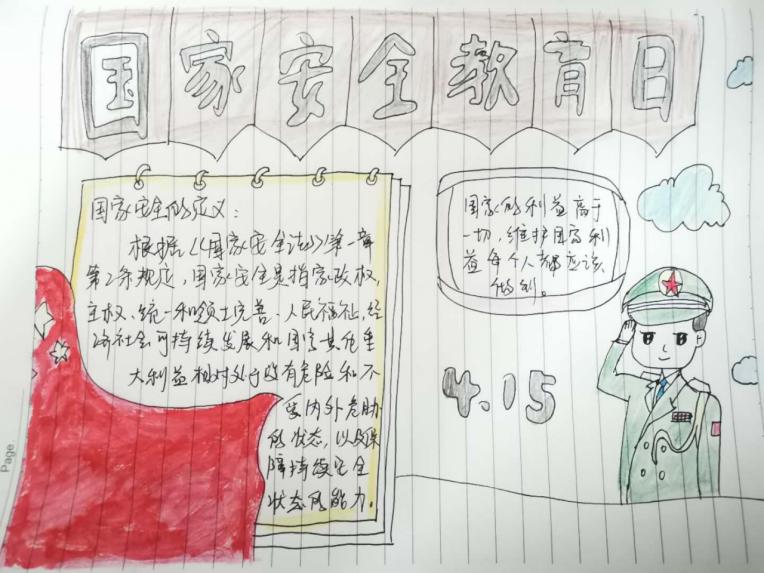 国家安全教育日
国家安全的定义:
根据《国家安全法》第一章
第2条规定,国家安全是指家政权,
主权、统一和领土完善、人民福祉,经
济社会可持续发展和国家其他重
大利益相对处于没有危险和不
受内外危胁
的状态,以及保
障持续安全
状态的能力。
国家的利益高于
一切,维护国家利
益每个人都应该
做到。
4.15
Page